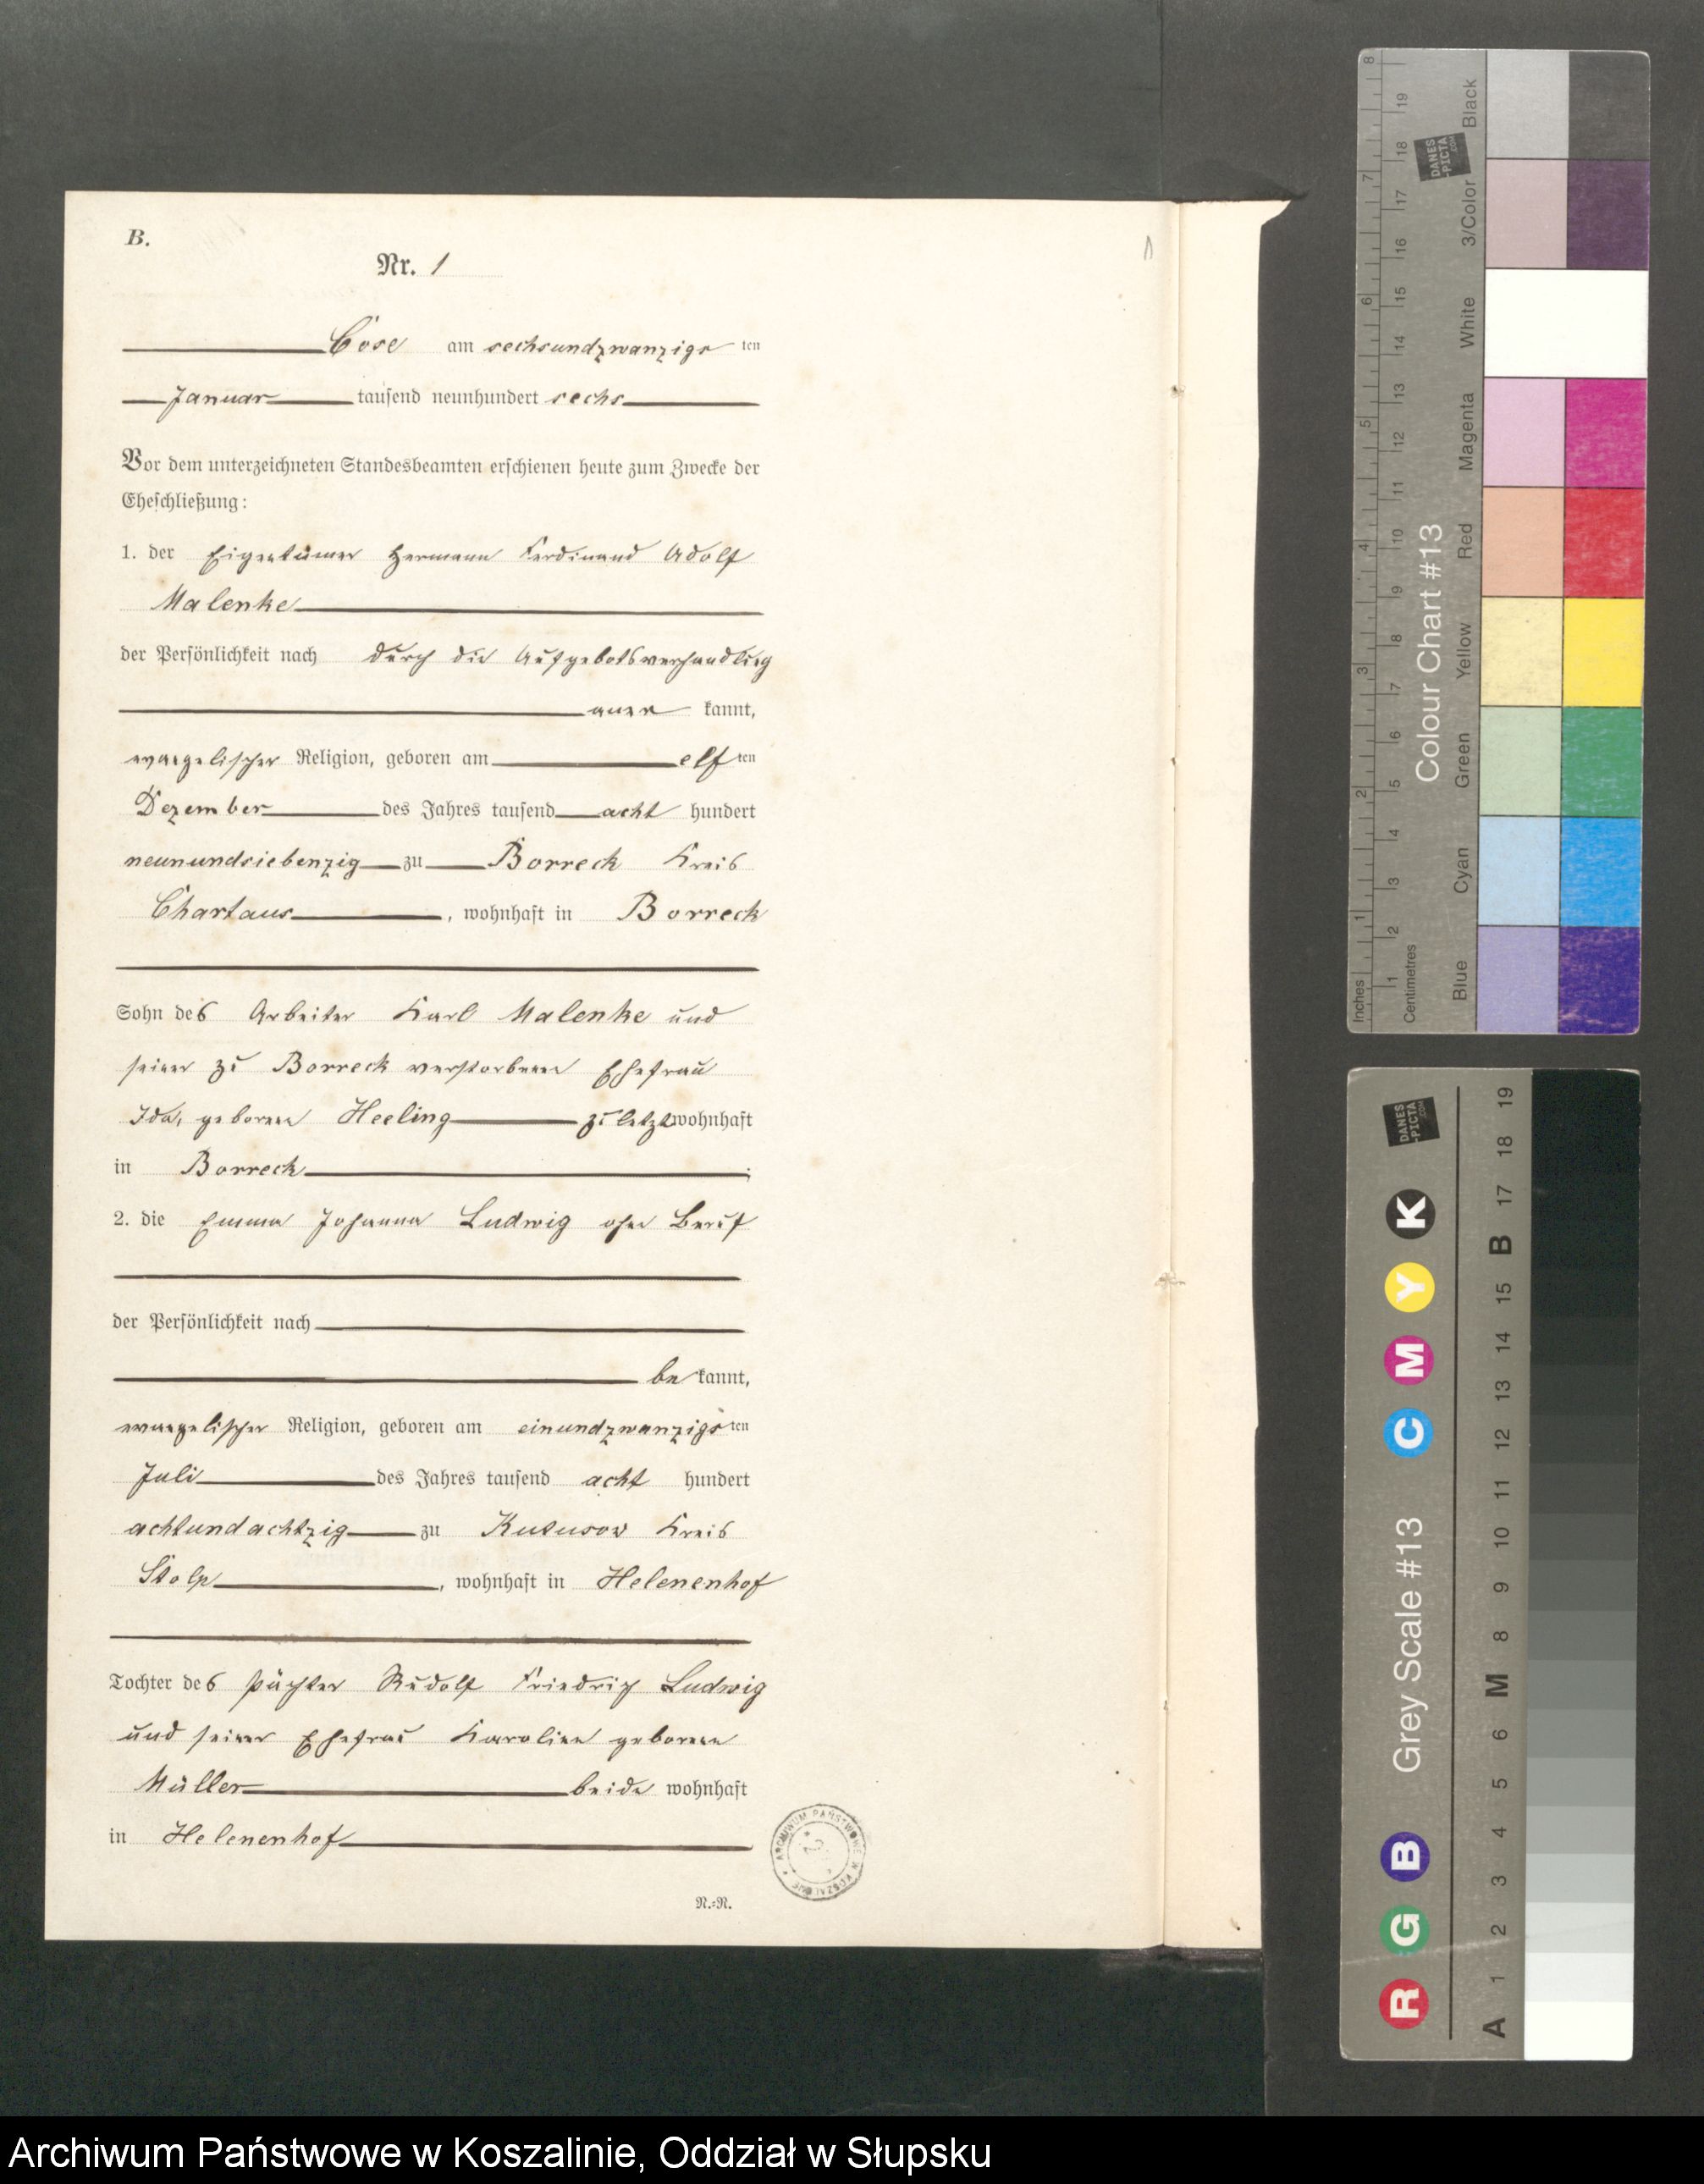 B.
Nr. 1
Cose am sechsundzwanzigsten
Januar tausend neunhundert sechs
Vor dem unterzeichneten Standesbeamten erschienen heute zum Zwecke der
Eheschließung:
1. der Eigentümer Hermann Ferdinand Adolf
Malenke
der Persönlichkeit nach durch die Aufgebotsverhandlung
anerkannt,
evangelischer Religion, geboren am elften
Dezember des Jahres tausend acht hundert
neunundsiebenzig zu Borreck Kreis
Chartaus, wohnhaft in Borreck
Sohn des Arbeiter Karl Malenke und
seiner zu Borreck verstorbenen Ehefrau
Ida, geborene Heeling zuletzt wohnhaft
in Borreck;
2. die Emma Johanna Ludwig ohne Beruf
der Persönlichkeit nach
bekannt,
evangelischer Religion, geboren am einundzwanzigsten
Juli des Jahres tausend acht hundert
achtundachtzig zu Kutusow Kreis
Stolp, wohnhaft in Helenenhof
Tochter des Pächter Rudolf Friedrich Ludwig
und seiner Ehefrau Karoline geborene
Müller beide wohnhaft
in Helenenhof
N.=N.
ARCHIWUM PAŃSTWOWE W KOSZALINIE
Colour Chart #13
DANES-PICTA.COM
Inches 1 2 3 4 5 6 7 8
Centimetres 1 2 3 4 5 6 7 8 9 10 11 12 13 14 15 16 17 18 19
Blue Cyan Green Yellow Red Magenta White 3/Color Black
Grey Scale #13
DANES-PICTA.COM
R G B C M Y K
A 1 2 3 4 5 6 M 8 9 10 11 12 13 14 15 B 17 18 19
Archiwum Państwowe w Koszalinie, Oddział w Słupsku